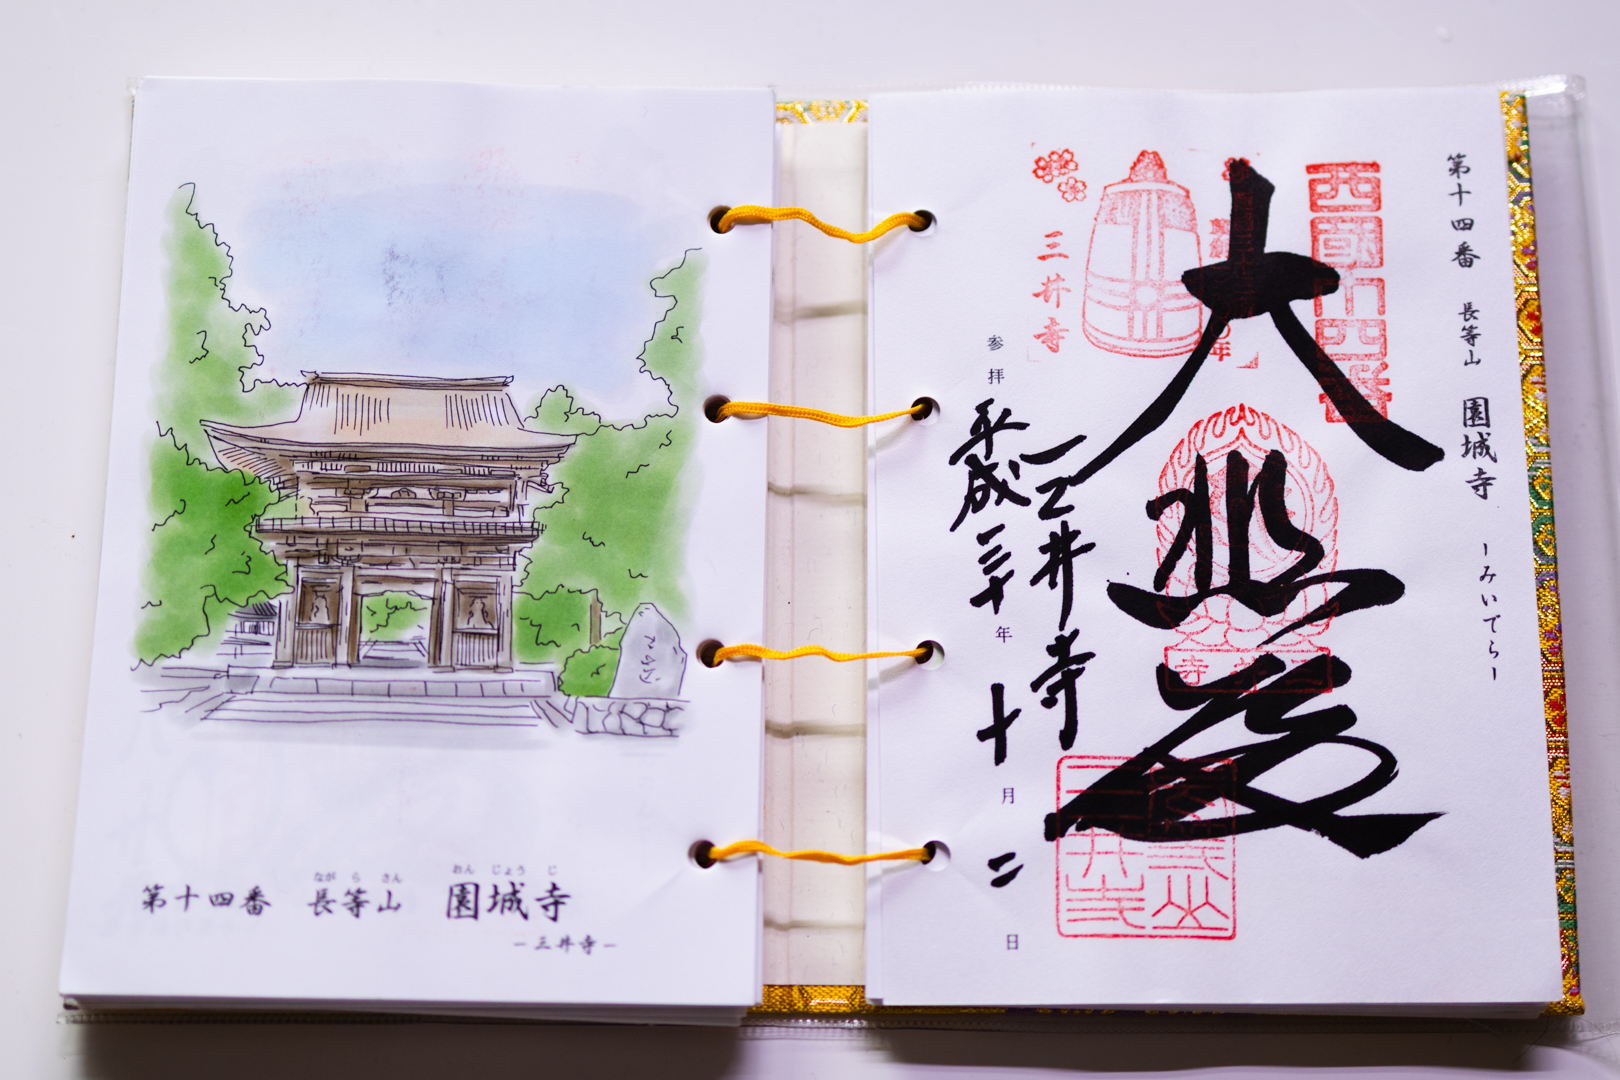 第十四番 長等山 園城寺
ながらさん おんじょうじ
－三井寺－
第十四番 長等山 園城寺 －みいでら－
西国十四番
大悲殿
三井寺
三井寺
参拝 平成三十年 十月 二日
三井寺